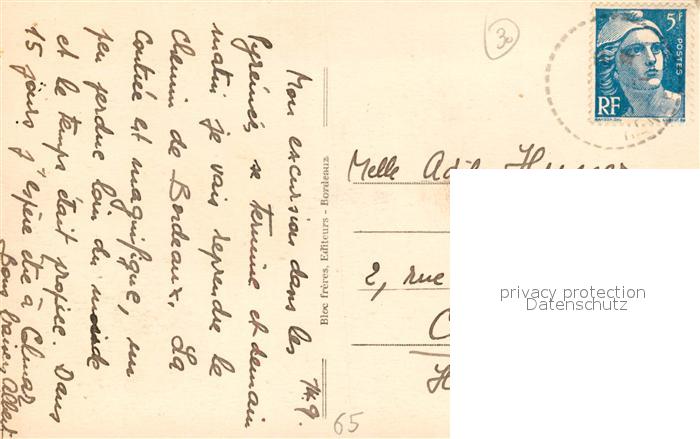 14.9.
Mon excursion dans les
Pyrénées se termine et demain
matin je vais reprendre le
Chemin de Bordeaux. La
Contrée est magnifique, un
peu perdue loin du monde
et le temps était propice. Dans
15 jours j'espère être à Colmar
Bons baisers Albert
Bloc frères, Editeurs - Bordeaux
65
30
5F
POSTES
RF
Melle
2, rue
C
H
privacy protection
Datenschutz